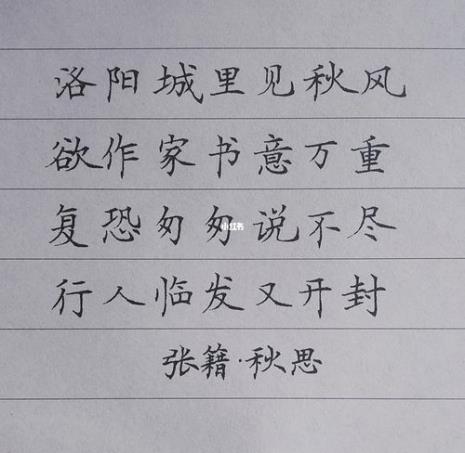 洛阳城里见秋风
欲作家书意万重
复恐匆匆说不尽
小红书
行人临发又开封
张籍·秋思